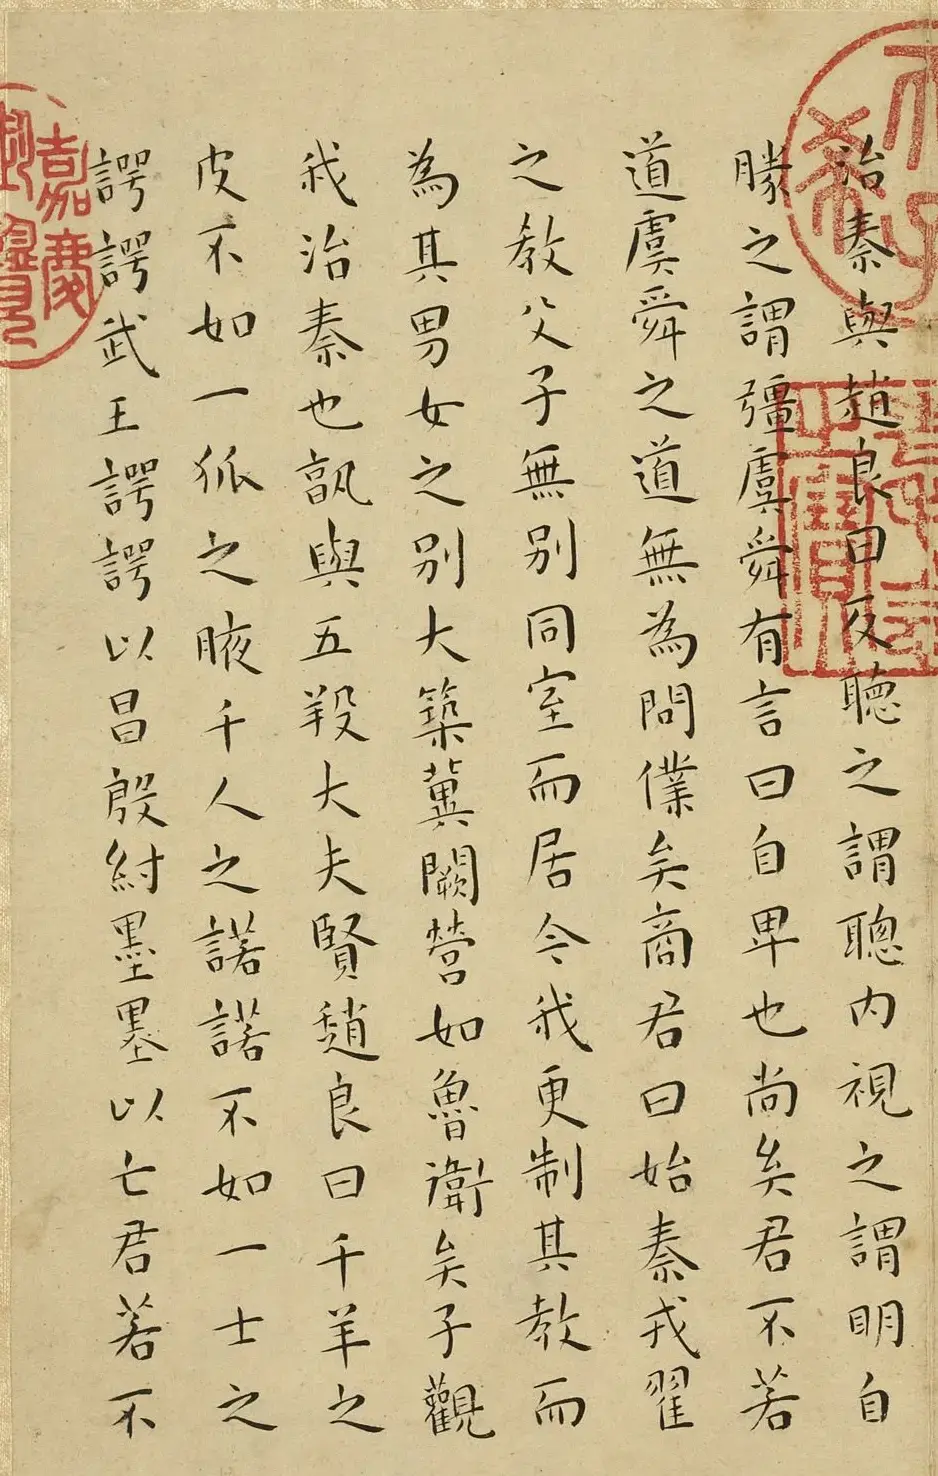 治秦與趙良曰反聽之謂聰內視之謂明自
勝之謂彊虞舜有言曰自卑也尚矣君不若
道虞舜之道無為問僕矣商君曰始秦戎翟
之教父子無別同室而居今我更制其教而
為其男女之別大築冀闕營如魯衛矣子觀
我治秦也孰與五羖大夫賢趙良曰千羊之
皮不如一狐之腋千人之諾諾不如一士之
諤諤武王諤諤以昌殷紂墨墨以亡君若不
嘉慶
御覽